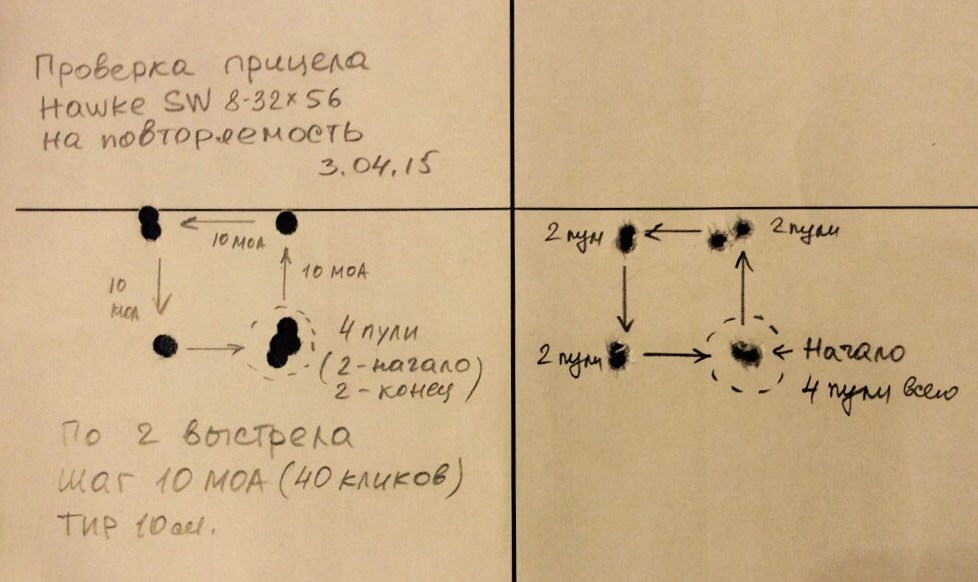 Проверка прицела
Hawke SW 8-32×56
на повторяемость
3.04.15
10 МОА
10 МОА
10
МОА
4 пули
(2-начало
2-конец)
По 2 выстрела
Шаг 10 МОА (40 кликов)
Тир 10м.
2 пули
2 пули
2 пули
Начало
4 пули всего